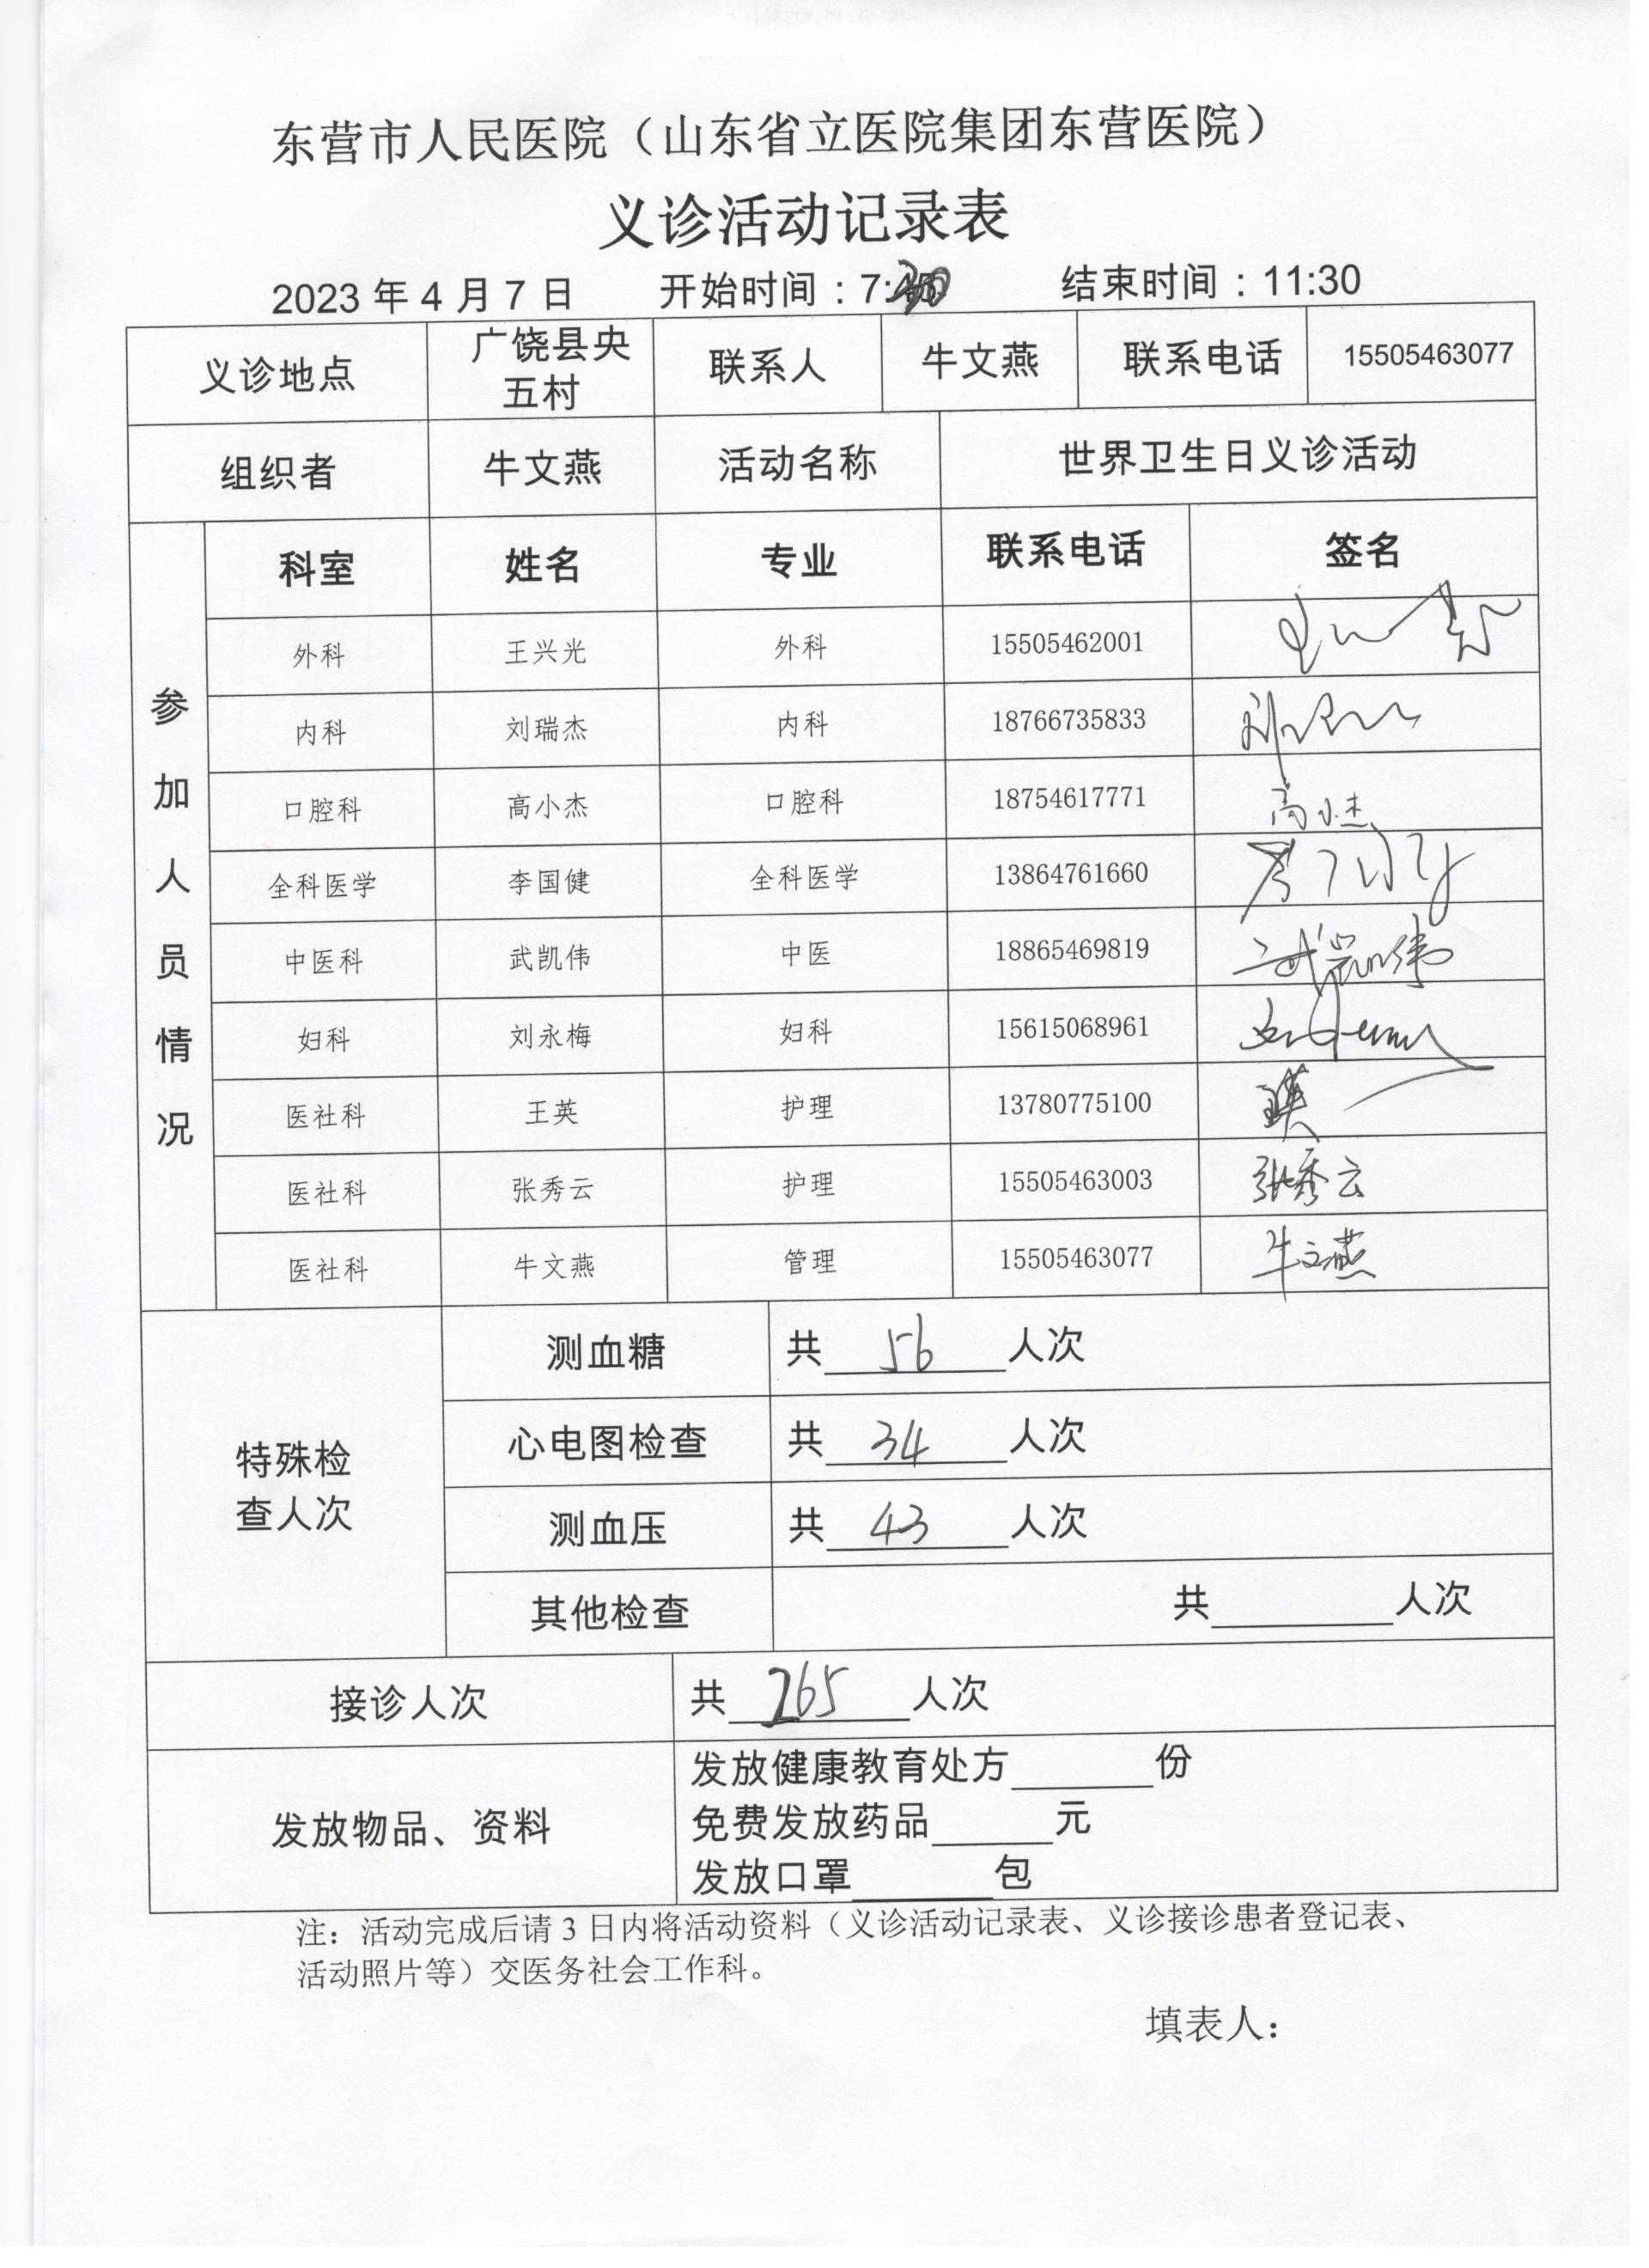 东营市人民医院（山东省立医院集团东营医院）
义诊活动记录表
2023 年 4 月 7 日 开始时间：7:30 结束时间：11:30
义诊地点 广饶县央五村 联系人 牛文燕 联系电话 15505463077
组织者 牛文燕 活动名称 世界卫生日义诊活动
参加人员情况
科室 姓名 专业 联系电话 签名
外科 王兴光 外科 15505462001
内科 刘瑞杰 内科 18766735833
口腔科 高小杰 口腔科 18754617771 高小杰
全科医学 李国健 全科医学 13864761660
中医科 武凯伟 中医 18865469819 武凯伟
妇科 刘永梅 妇科 15615068961
医社科 王英 护理 13780775100 王英
医社科 张秀云 护理 15505463003 张秀云
医社科 牛文燕 管理 15505463077 牛文燕
特殊检查人次
测血糖 共 56 人次
心电图检查 共 34 人次
测血压 共 43 人次
其他检查 共 人次
接诊人次 共 265 人次
发放物品、资料
发放健康教育处方 份
免费发放药品 元
发放口罩 包
注：活动完成后请 3 日内将活动资料（义诊活动记录表、义诊接诊患者登记表、
活动照片等）交医务社会工作科。
填表人：